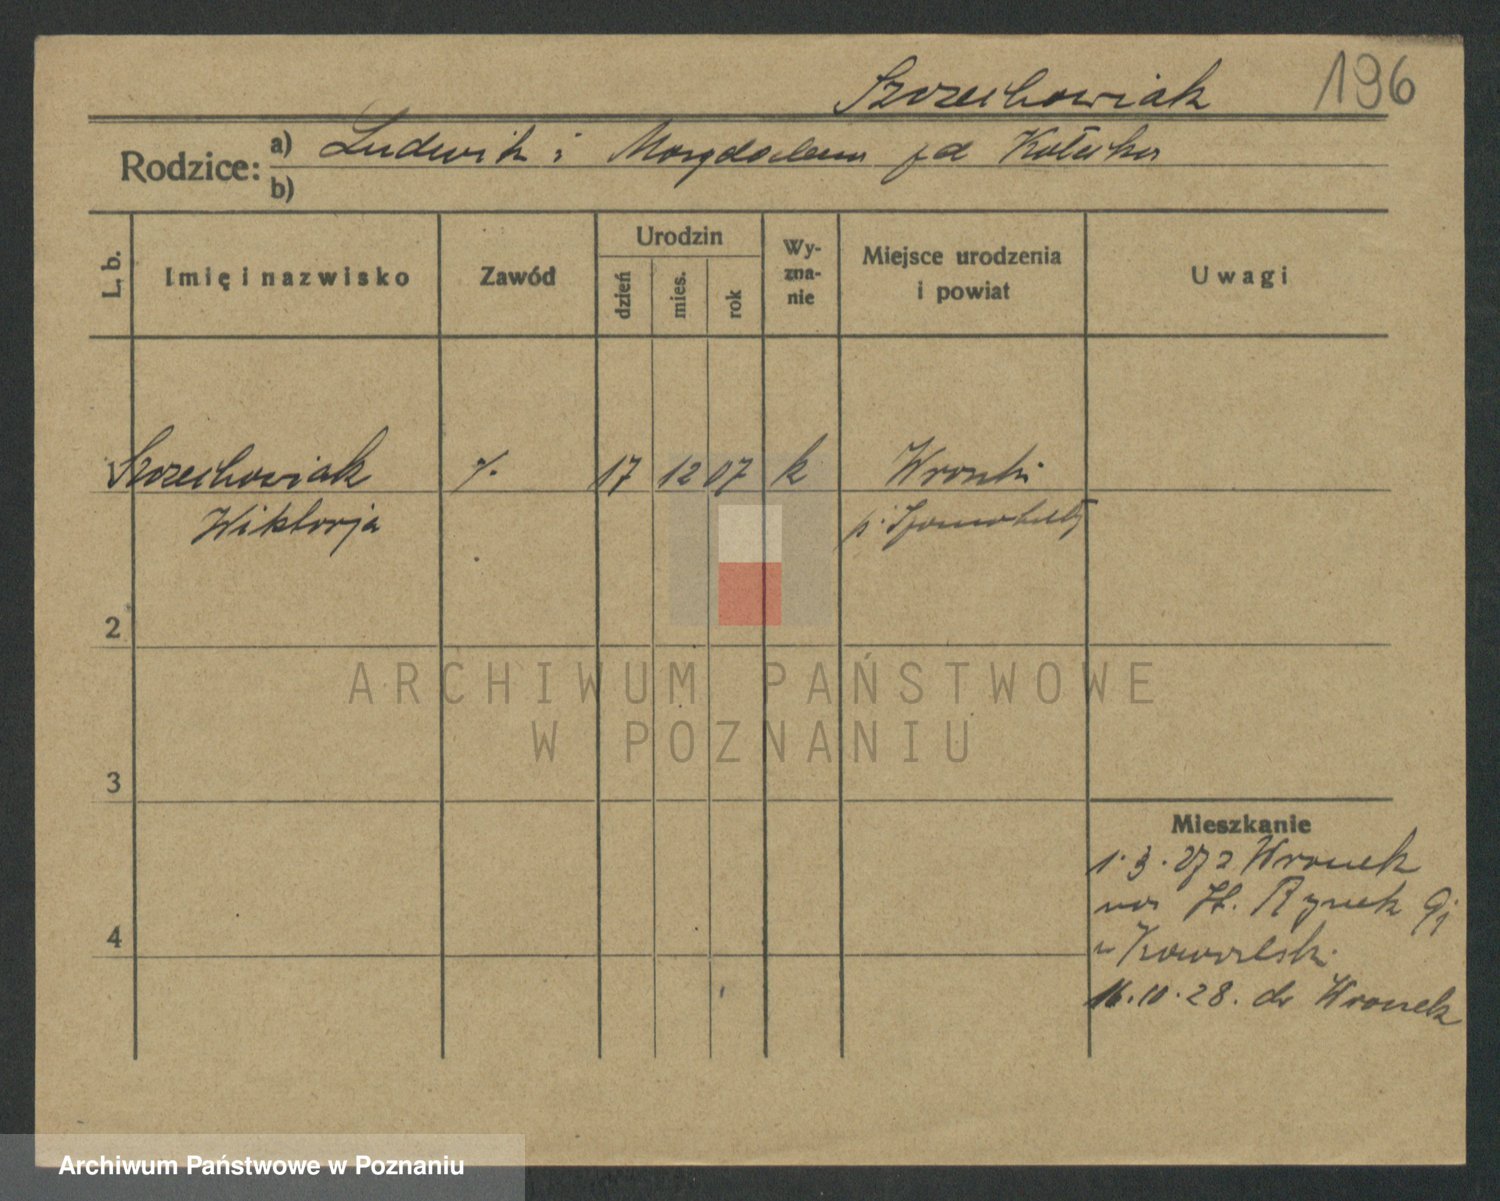 Szczechowiak 196
Rodzice: a) Ludwik i Magdalena
b)
L. b. Imię i nazwisko Zawód Urodzin Wyznanie Miejsce urodzenia i powiat Uwagi
dzień mies. rok
Szczechowiak 17 12 07 k Wronki
Wiktorja p. Szamotuły
2
3
4
Mieszkanie
1.3.27 z Wronek
na St. Rynek
Kowalski
16.10.28. do Wronek
ARCHIWUM PAŃSTWOWE
W POZNANIU
Archiwum Państwowe w Poznaniu